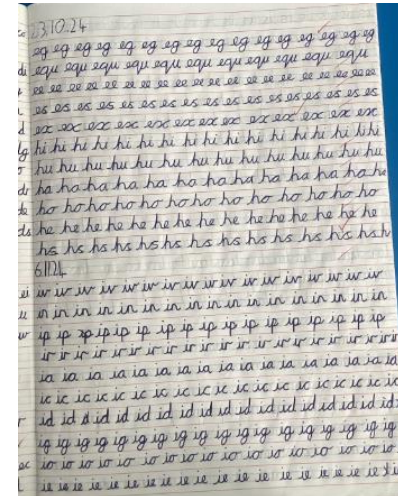 23.10.24
eg eg eg eg eg eg eg eg eg eg eg eg eg eg
equ equ equ equ equ equ equ equ equ equ
ee ee ee ee ee ee ee ee ee ee ee ee ee ee ee
es es es es es es es es es es es es es es
ex ex ex ex ex ex ex ex ex ex ex ex
hi hi hi hi hi hi hi hi hi hi hi hi hi hihi
hu hu hu hu hu hu hu hu hu hu hu hu hu
ha ha ha ha ha ha ha ha ha ha ha ha ha
ho ho ho ho ho ho ho ho ho ho ho ho ho
he he he he he he he he he he he he he he
hs hs hs hs hs hs hs hs hs hs hs hs hs h
6.11.24
iv iv iv iv iv iv iv iv iv iv iv iv iv iv
in in in in in in in in in in in in in in
ip ip ip ip ip ip ip ip ip ip ip ip ip ip
ir ir ir ir ir ir ir ir ir ir ir ir ir ir ir
ia ia ia ia ia ia ia ia ia ia ia ia ia ia
ic ic ic ic ic ic ic ic ic ic ic ic ic ic ic
id id id id id id id id id id id id id id id
ig ig ig ig ig ig ig ig ig ig ig ig ig ig
io io io io io io io io io io io io io
ie ie ie ie ie ie ie ie ie ie ie ie ie ie